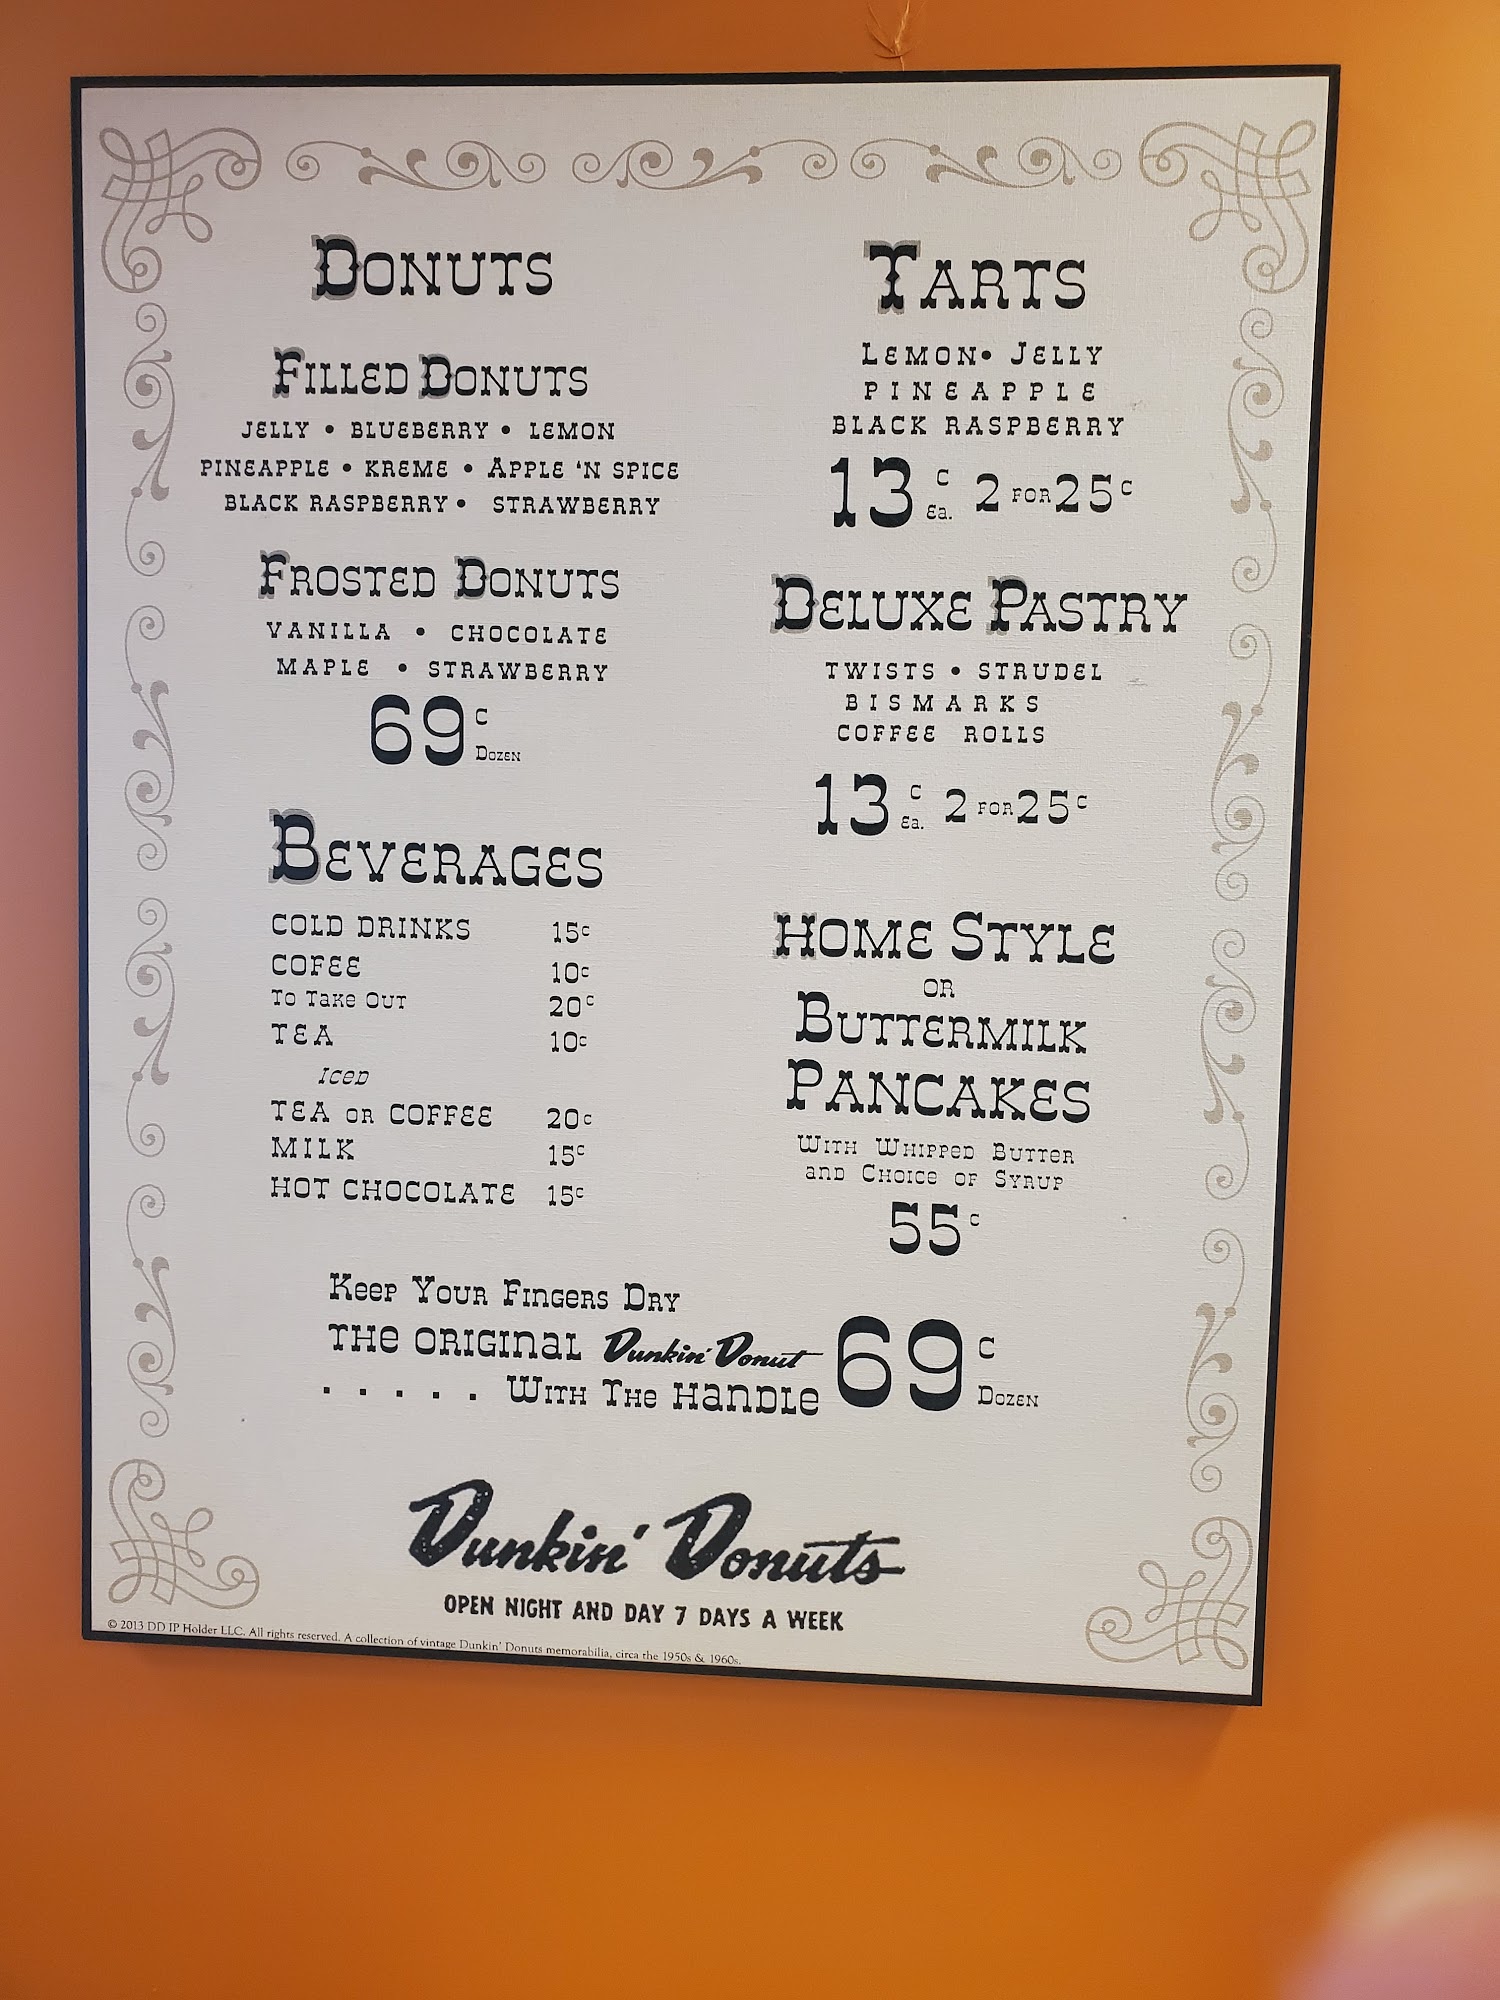 DONUTS
FILLED DONUTS
JELLY • BLUEBERRY • LEMON
PINEAPPLE • KREME • APPLE 'N SPICE
BLACK RASPBERRY • STRAWBERRY
FROSTED DONUTS
VANILLA • CHOCOLATE
MAPLE • STRAWBERRY
69c DOZEN
BEVERAGES
COLD DRINKS 15c
COFEE 10c
To Take Out 20c
TEA 10c
Iced
TEA OR COFFEE 20c
MILK 15c
HOT CHOCOLATE 15c
TARTS
LEMON• JELLY
PINEAPPLE
BLACK RASPBERRY
13c Ea. 2 FOR 25c
DELUXE PASTRY
TWISTS • STRUDEL
BISMARKS
COFFEE ROLLS
13c Ea. 2 FOR 25c
HOME STYLE
OR
BUTTERMILK
PANCAKES
WITH WHIPPED BUTTER
and CHOICE OF SYRUP
55c
Keep Your Fingers Dry
THE ORIGINAL Dunkin' Donut
. . . . . WITH THE HANDLE
69c DOZEN
Dunkin' Donuts
OPEN NIGHT AND DAY 7 DAYS A WEEK
© 2013 DD IP Holder LLC. All rights reserved. A collection of vintage Dunkin' Donuts memorabilia, circa the 1950s & 1960s.